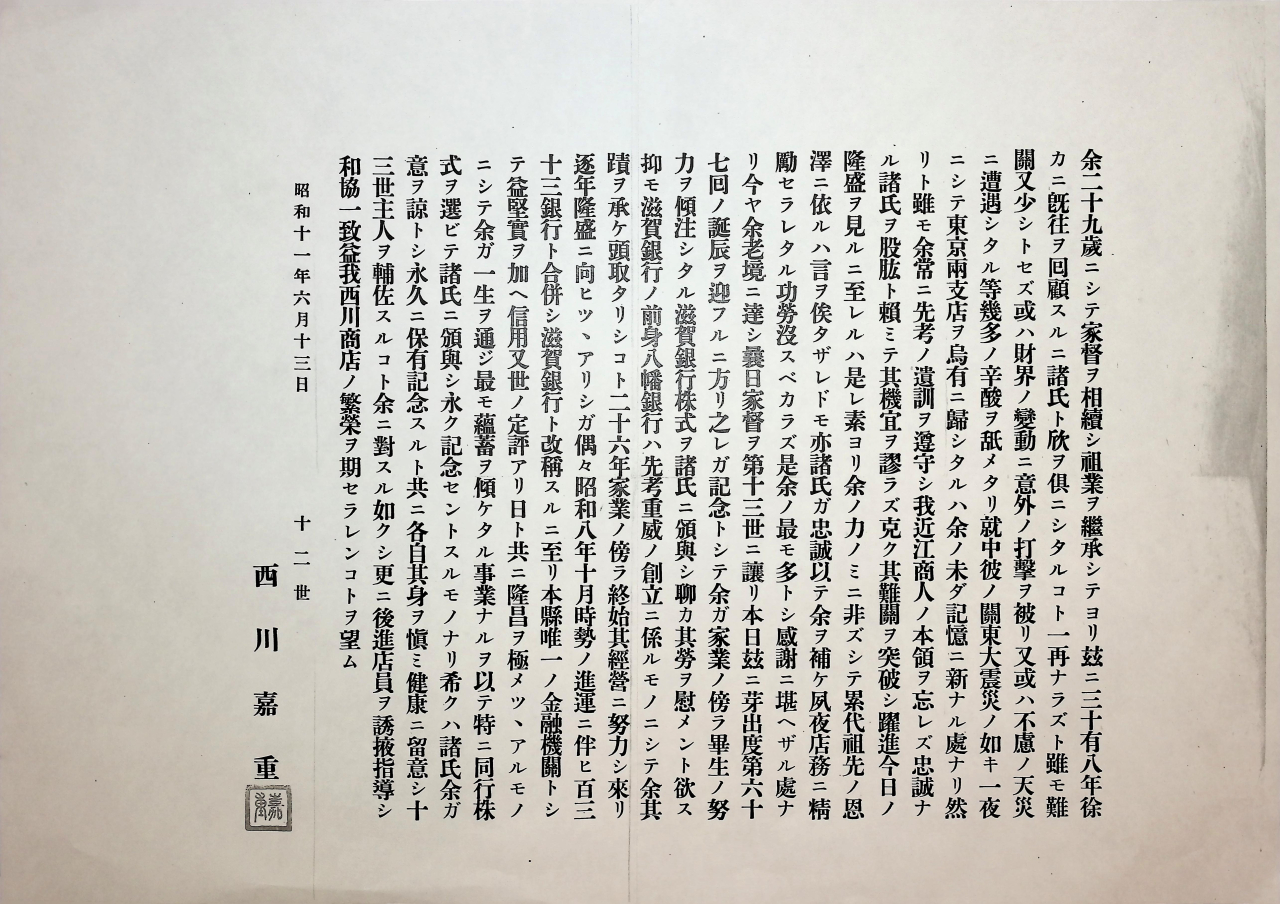 余二十九歲ニシテ家督ヲ相續シ祖業ヲ繼承シテヨリ玆ニ三十有八年徐
カニ旣往ヲ回顧スルニ諸氏ト欣ヲ俱ニシタルコト一再ナラズト雖モ難
關又少シトセズ或ハ財界ノ變動ニ意外ノ打擊ヲ被リ又或ハ不慮ノ天災
ニ遭遇シタル等幾多ノ辛酸ヲ舐メタリ就中彼ノ關東大震災ノ如キ一夜
ニシテ東京兩支店ヲ烏有ニ歸シタルハ余ノ未ダ記憶ニ新ナル處ナリ然
リト雖モ余常ニ先考ノ遺訓ヲ遵守シ我近江商人ノ本領ヲ忘レズ忠誠ナ
ル諸氏ヲ股肱ト賴ミテ其機宜ヲ謬ラズ克ク其難關ヲ突破シ躍進今日ノ
隆盛ヲ見ルニ至レルハ是レ素ヨリ余ノ力ノミニ非ズシテ累代祖先ノ恩
澤ニ依ルハ言ヲ俟タザレドモ亦諸氏ガ忠誠以テ余ヲ補ケ夙夜店務ニ精
勵セラレタル功勞沒スベカラズ是余ノ最モ多トシ感謝ニ堪ヘザル處ナ
リ今ヤ余老境ニ達シ曩日家督ヲ第十三世ニ讓リ本日玆ニ芽出度第六十
七回ノ誕辰ヲ迎フルニ方リ之レガ記念トシテ余ガ家業ノ傍ラ畢生ノ努
力ヲ傾注シタル滋賀銀行株式ヲ諸氏ニ頒與シ聊カ其勞ヲ慰メント欲ス
抑モ滋賀銀行ノ前身八幡銀行ハ先考重威ノ創立ニ係ルモノニシテ余其
蹟ヲ承ケ頭取タリシコト二十六年家業ノ傍ラ終始其經營ニ努力シ來リ
逐年隆盛ニ向ヒツヽアリシガ偶々昭和八年十月時勢ノ進運ニ伴ヒ百三
十三銀行ト合併シ滋賀銀行ト改稱スルニ至リ本縣唯一ノ金融機關トシ
テ益堅實ヲ加ヘ信用又世ノ定評アリ日ト共ニ隆昌ヲ極メツヽアルモノ
ニシテ余ガ一生ヲ通ジ最モ蘊蓄ヲ傾ケタル事業ナルヲ以テ特ニ同行株
式ヲ選ビテ諸氏ニ頒與シ永ク記念セントスルモノナリ希クハ諸氏余ガ
意ヲ諒トシ永久ニ保有記念スルト共ニ各自其身ヲ愼ミ健康ニ留意シ十
三世主人ヲ輔佐スルコト余ニ對スル如クシ更ニ後進店員ヲ誘掖指導シ
和協一致益我西川商店ノ繁榮ヲ期セラレンコトヲ望ム
昭和十一年六月十三日
十二世
西川嘉重
嘉重